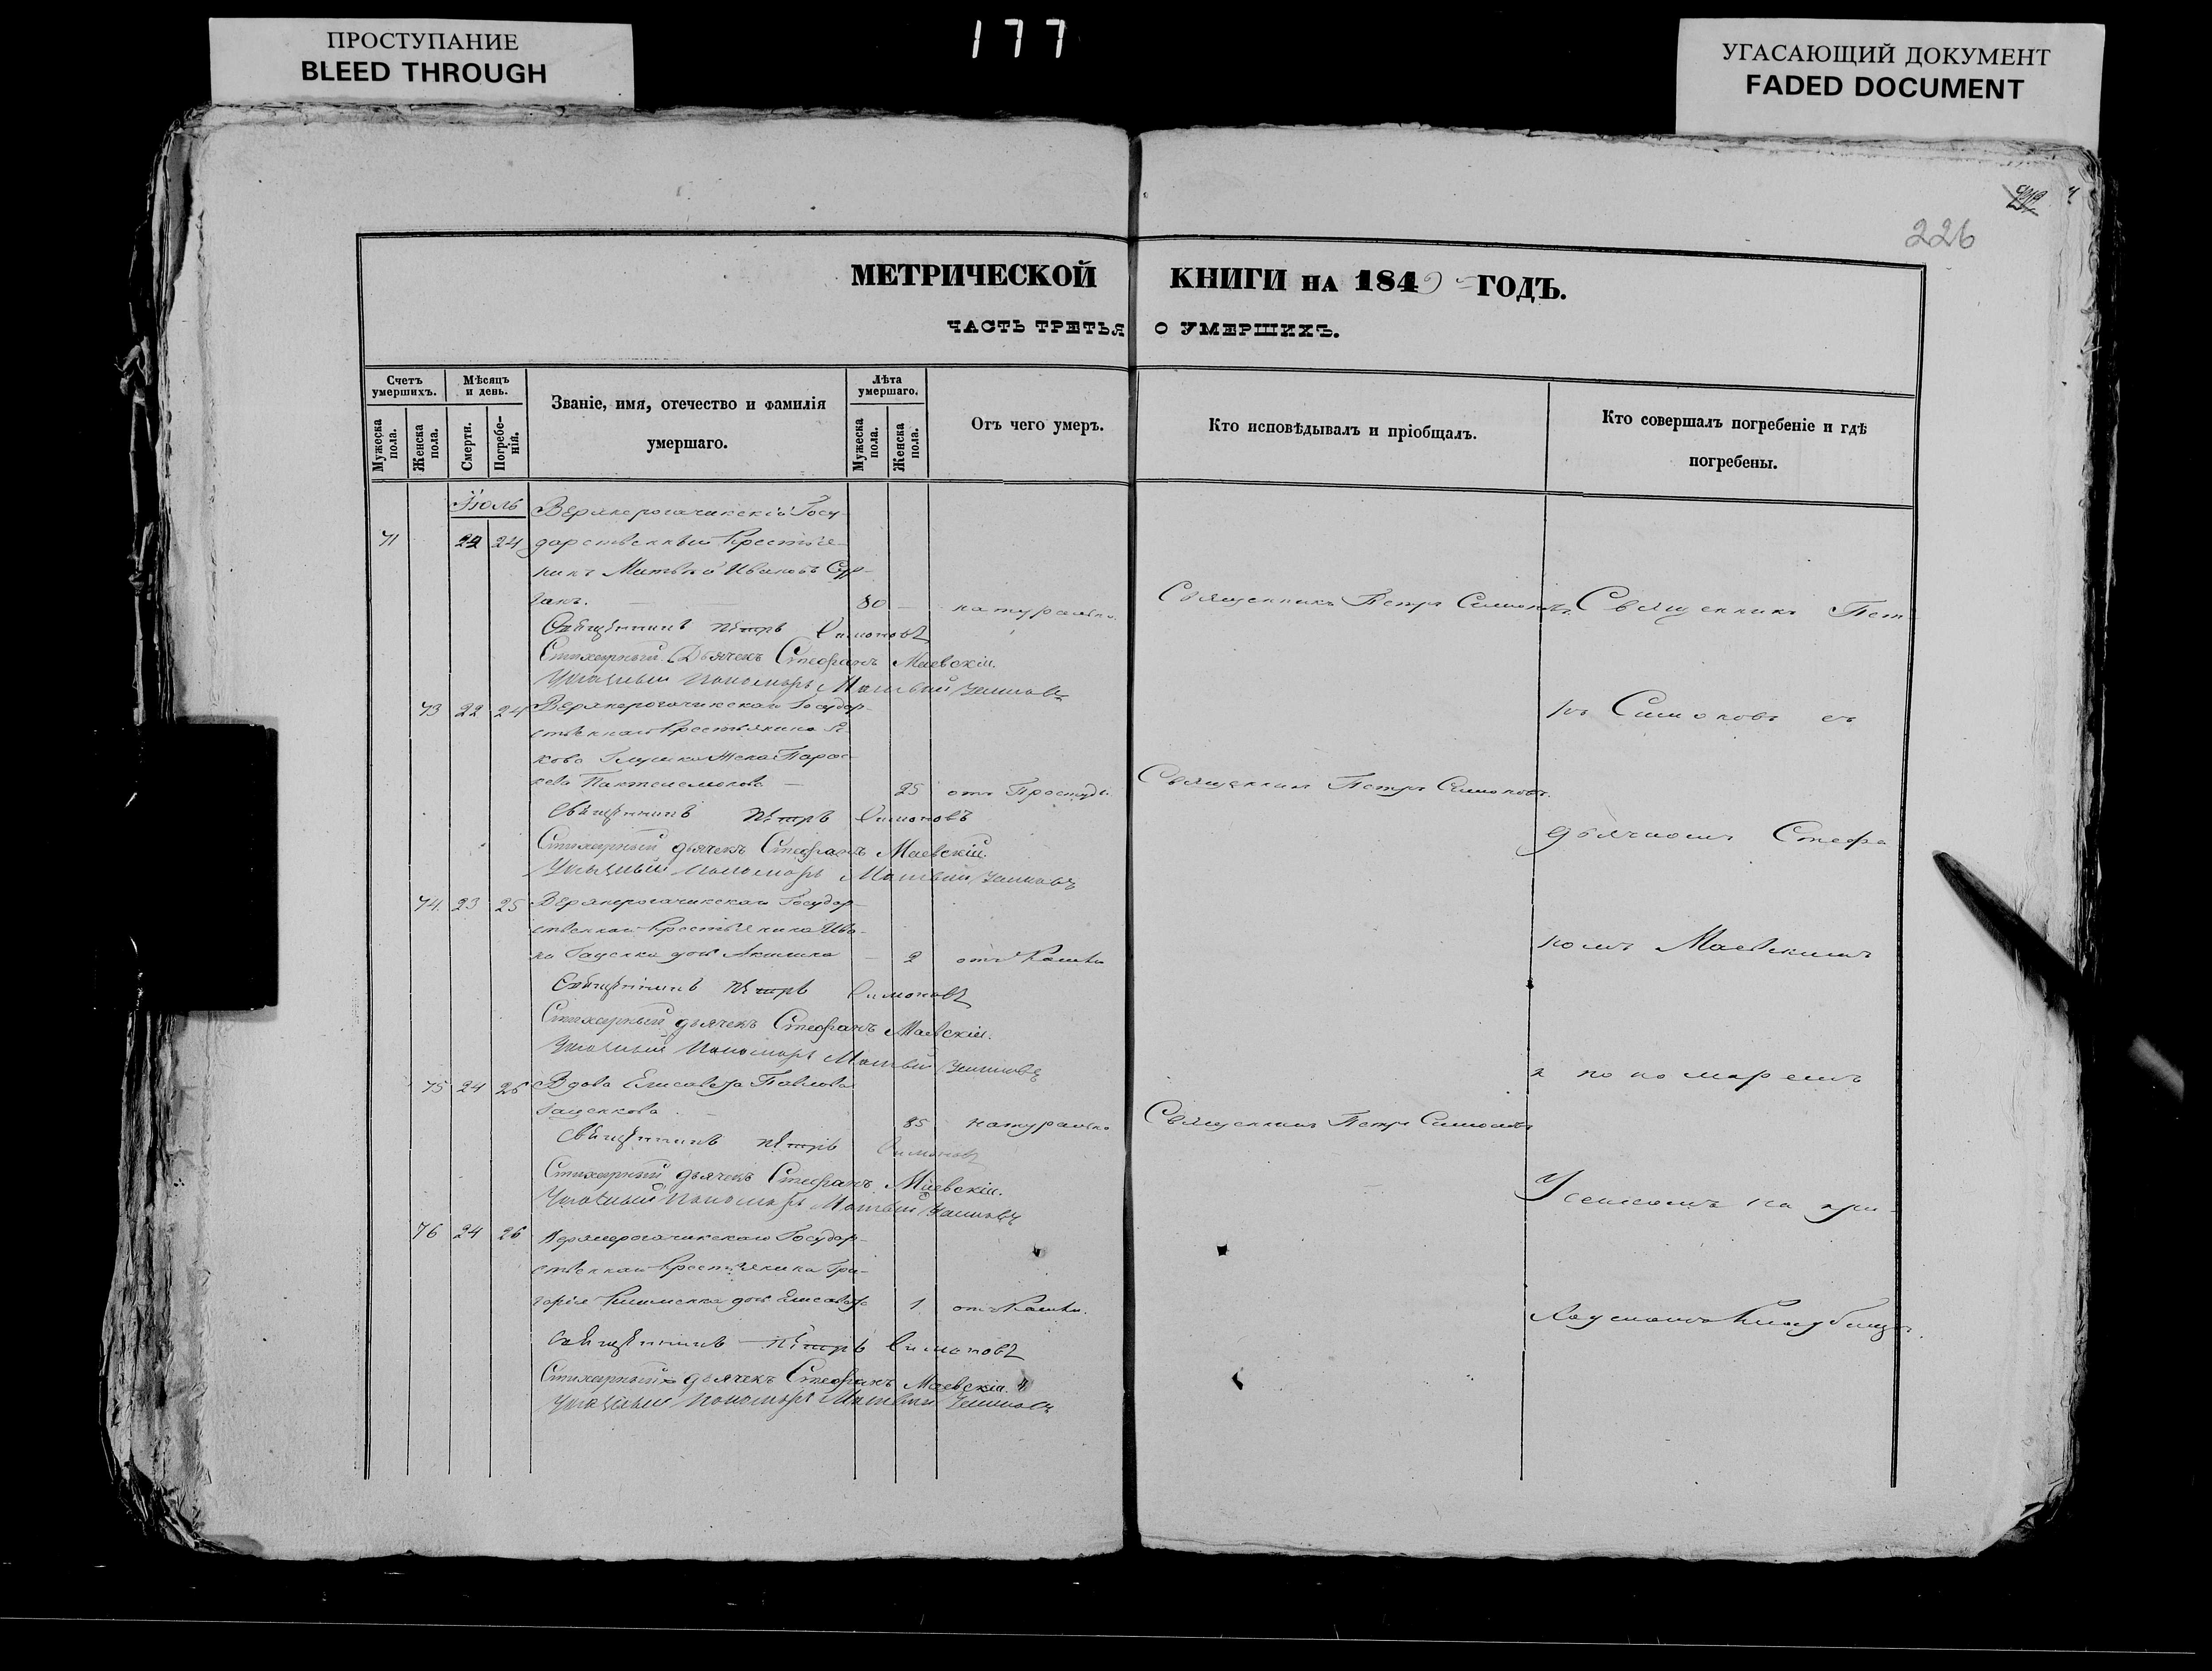 ПРОСТУПАНИЕ
BLEED THROUGH
177
УГАСАЮЩИЙ ДОКУМЕНТ
FADED DOCUMENT
226
МЕТРИЧЕСКОЙ КНИГИ НА 1849 ГОДЪ.
ЧАСТЬ ТРЕТЬЯ О УМЕРШИХЪ.
Счетъ умершихъ.
Мѣсяцъ и день.
Званіе, имя, отечество и фамилія умершаго.
Лѣта умершаго.
Отъ чего умеръ.
Кто исповѣдывалъ и пріобщалъ.
Кто совершалъ погребеніе и гдѣ погребены.
Мужеска пола.
Женска пола.
Смерти.
Погребенія.
Мужеска пола.
Женска пола.
Іюль
Верхнерогачикскій Госу-
71 22 24 дарственный Крестья-
нинъ Матвѣй Ивановъ
80 натурально Священникъ Петръ Симоновъ Священникъ Пет
Священникъ Петръ Симоновъ
Стихарный Дьячекъ Стефанъ Маевскій.
Пономарь Матвѣй
73 22 24 Верхнерогачикскаго Государ-
ственнаго Крестьянина
жена Парас-
25 отъ Простуды Священникъ Петръ Симоновъ
ръ Симоновъ съ
Священникъ Петръ Симоновъ
Стихарный дьячекъ Стефанъ Маевскій.
Пономарь Матвѣй
дьячкомъ Стефа
74 23 25 Верхнерогачикскаго Государ-
ственнаго Крестьянина Ива-
на дочь 2 отъ Кашля
номъ Маевскимъ
Священникъ Петръ Симоновъ
Стихарный дьячекъ Стефанъ Маевскій.
Пономарь Матвѣй
75 24 26 Вдова Елисавета Павлова
и пономаремъ
85 натурально Священникъ Петръ Симоновъ
Священникъ Петръ Симоновъ
Стихарный дьячекъ Стефанъ Маевскій.
Пономарь Матвѣй
на при-
76 24 26 Верхнерогачикскаго Государ-
ственнаго Крестьянина Гри-
горія Клименка дочь Елисавета 1 отъ Кашля.
ходскомъ Кладбищѣ.
Священникъ Петръ Симоновъ
Стихарный дьячекъ Стефанъ Маевскій.
Пономарь Матвѣй